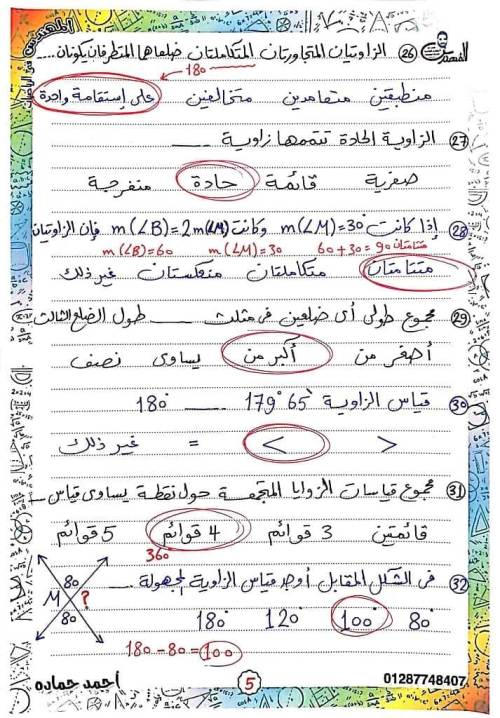 المهندس في الرياضيات
المهندس
26 الزاويتان المتجاورتان المتكاملتان ضلعاهما المتطرفان يكونان ....
180
منطبقتين متعامدين متخالفين على إستقامة واحدة
27 الزاوية الحادة تتممها زاوية ____
صفرية قائمة حادة منفرجة
28 إذا كانت m(∠M)=30° وكانت m(∠B)=2m(∠M) فإن الزاويتان
m(∠B)=60 m(∠M)=30 60+30=90 متتامتان
متتامتان متكاملتان منعكستان غير ذلك
29 مجموع طولى أى ضلعين فى مثلث ____ طول الضلع الثالث
أصغر من أكبر من يساوى نصف
30 قياس الزاوية 179° 65` ____ 180°
> < = غير ذلك
31 مجموع قياسات الزوايا المتجمعة حول نقطة يساوى قياس __
قائمتين 3 قوائم 4 قوائم 5 قوائم
360
32 فى الشكل المقابل أوجد قياس الزاوية المجهولة ____
80
M ?
80
80° 100° 120° 180°
180 - 80 = 100
أحمد حماده
5
01287748407